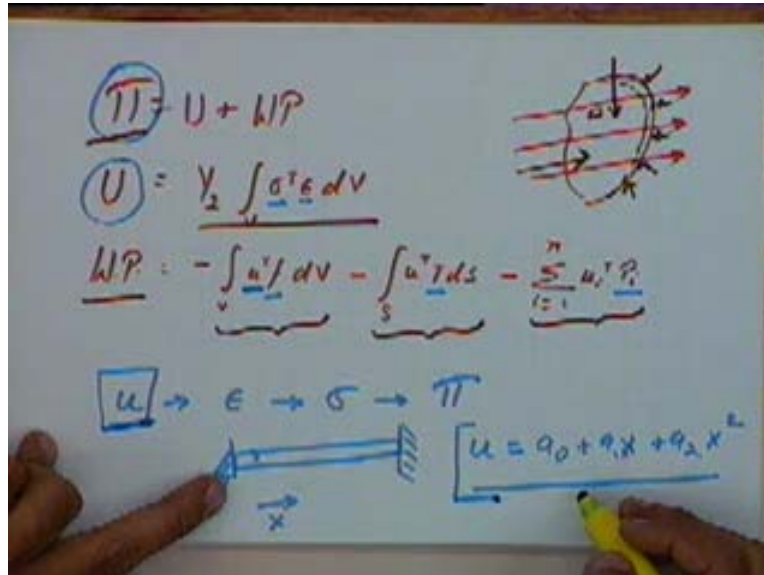 Π = U + W.P
U = 1/2 ∫_V σᵀ ε dV
W.P. = - ∫_V uᵀ f dV - ∫_S uᵀ T ds - Σ_{i=1}^{n} u_iᵀ P_i
u → ε → σ → Π
u = a₀ + a₁x + a₂x²
x